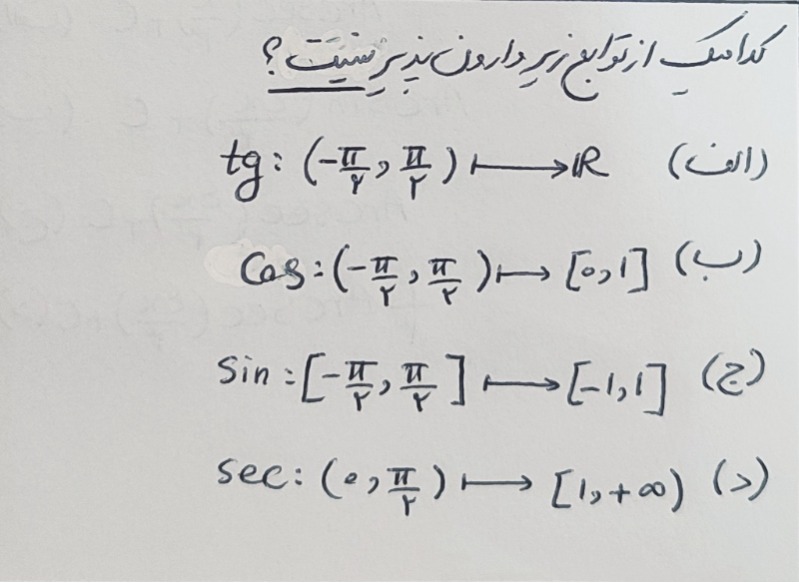 کدامیک از توابع زیر وارون پذیر نیست؟
الف) tg: (-π/۲, π/۲) ⟼ ℝ
ب) Cos: (-π/۲, π/۲) ⟼ [0,1]
ج) Sin: [-π/۲, π/۲] ⟼ [-1,1]
د) sec: (0, π/۲) ⟼ [1,+∞)